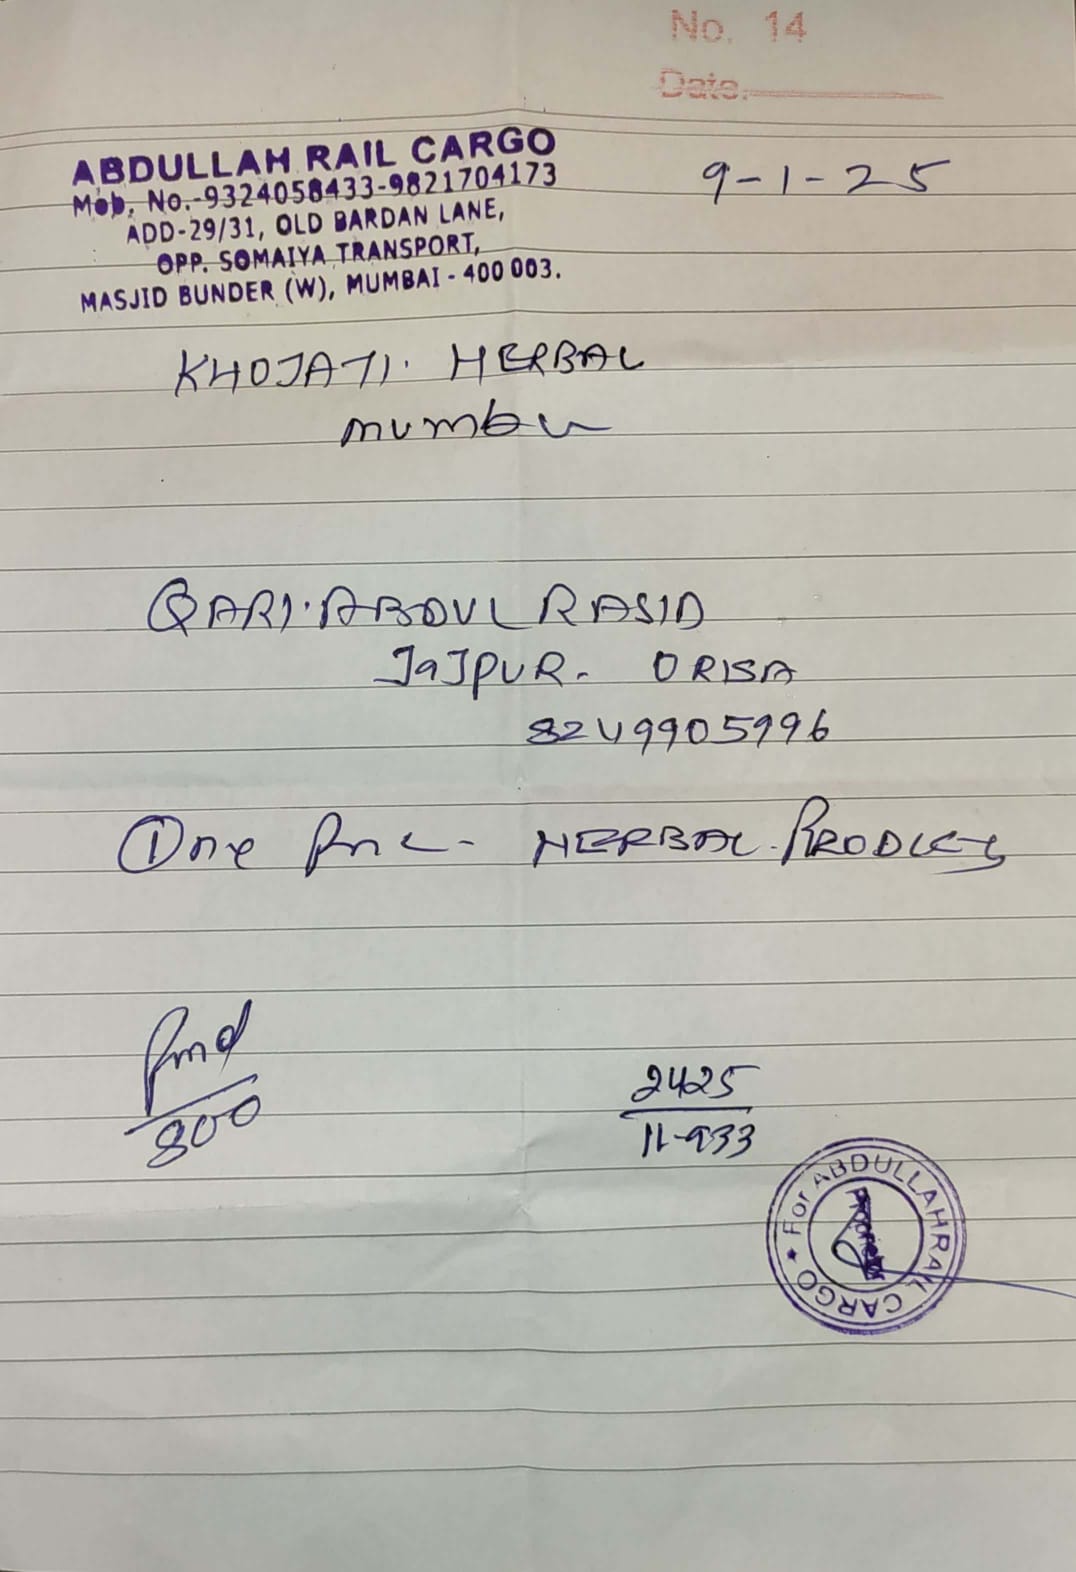 No. 14
Date.
ABDULLAH RAIL CARGO
Mob. No.-9324058433-9821704173
ADD-29/31, OLD BARDAN LANE,
OPP. SOMAIYA TRANSPORT,
MASJID BUNDER (W), MUMBAI - 400 003.
9-1-25
KHOJATI. HERBAL
QARI. ABDUL RASID
JAJPUR. ORISA
8249905996
① One HERBAL.
800
2425
11-933
For ABDULLAH RAIL CARGO
Proprietor